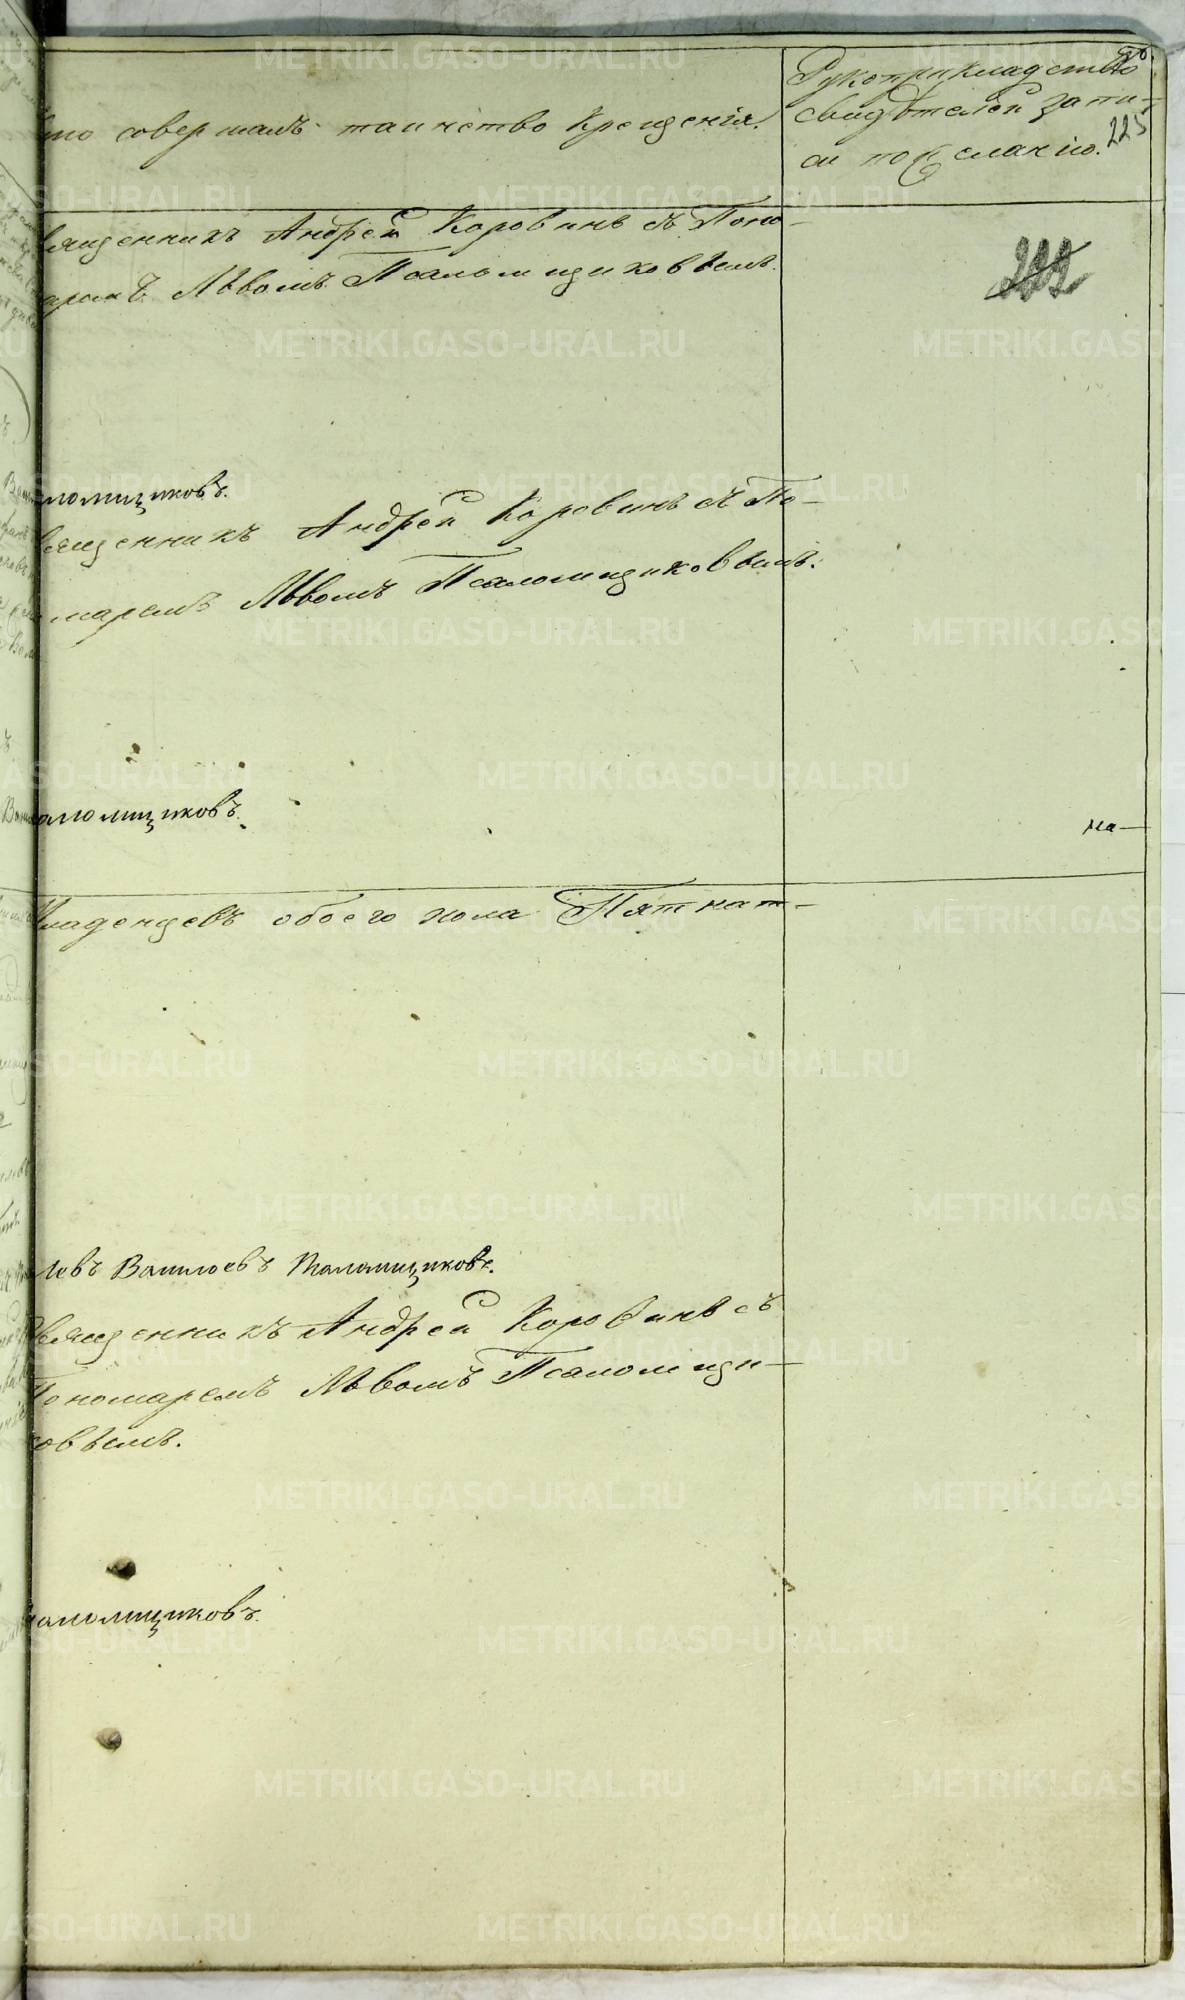 Кто совершалъ таинство Крещенія.
Рукоприкладство
свидѣтелей запи-
си по желанію.
225
222
Священникъ Андрей Коровинъ съ Поно-
маремъ Львомъ Псаломщиковымъ.
ломщиковъ.
Священникъ Андрей Коровинъ съ По-
номаремъ Львомъ Псаломщиковымъ.
аломщиковъ.
на-
Младенцевъ обоего пола Пятнат-
Левъ Васильевъ Псаломщиковъ.
Священникъ Андрей Коровинъ съ
Пономаремъ Львомъ Псаломщи-
ковымъ.
саломщиковъ.
METRIKI.GASO-URAL.RU